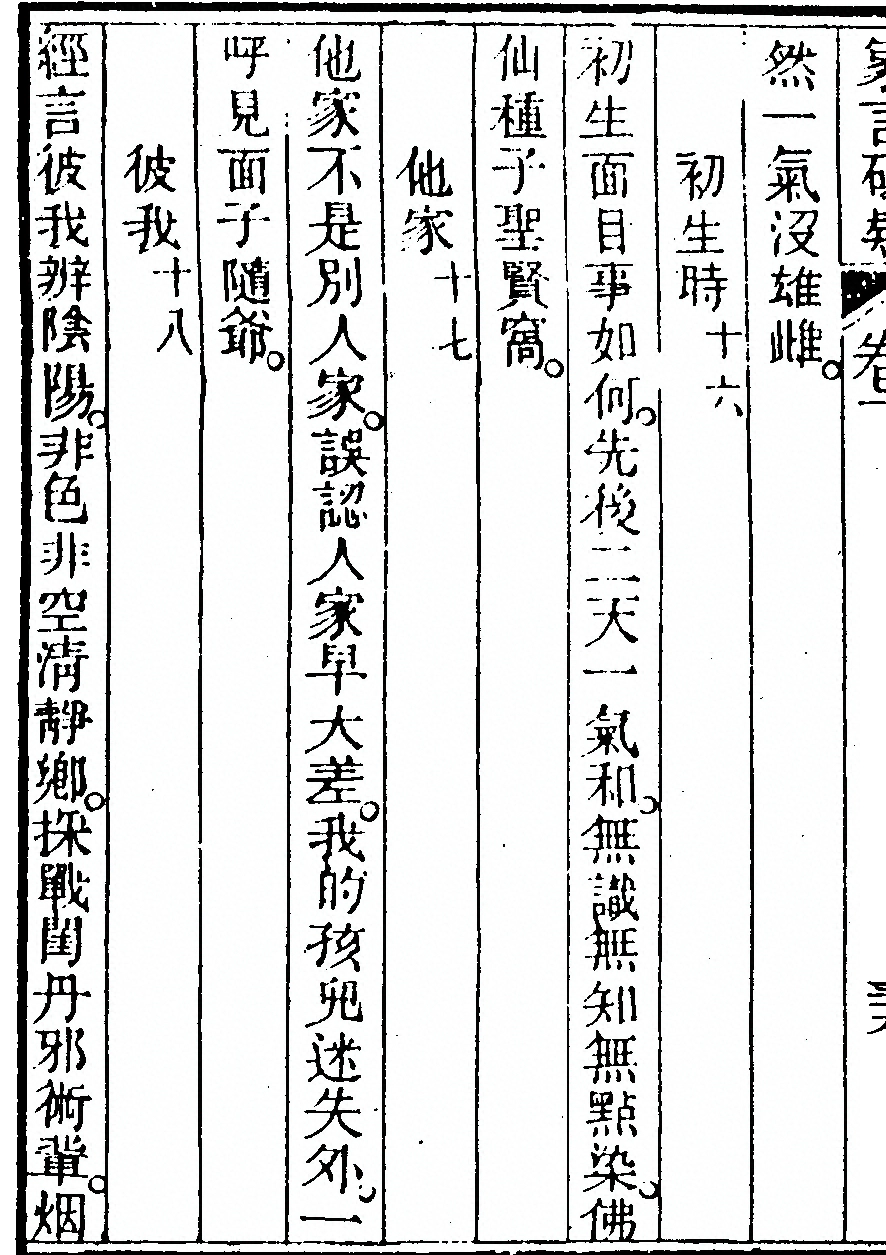 象言破疑 卷一
然一氣沒雄雌。
初生時 十六
初生面目事如何。先後二天一氣和。無識無知無點染。佛
仙種子聖賢窩。
他家 十七
他家不是別人家。誤認人家早大差。我的孩兒迷失外。一
呼見面子隨爺。
彼我 十八
經言彼我辨陰陽。非色非空清靜鄉。採戰閨丹邪術輩。烟